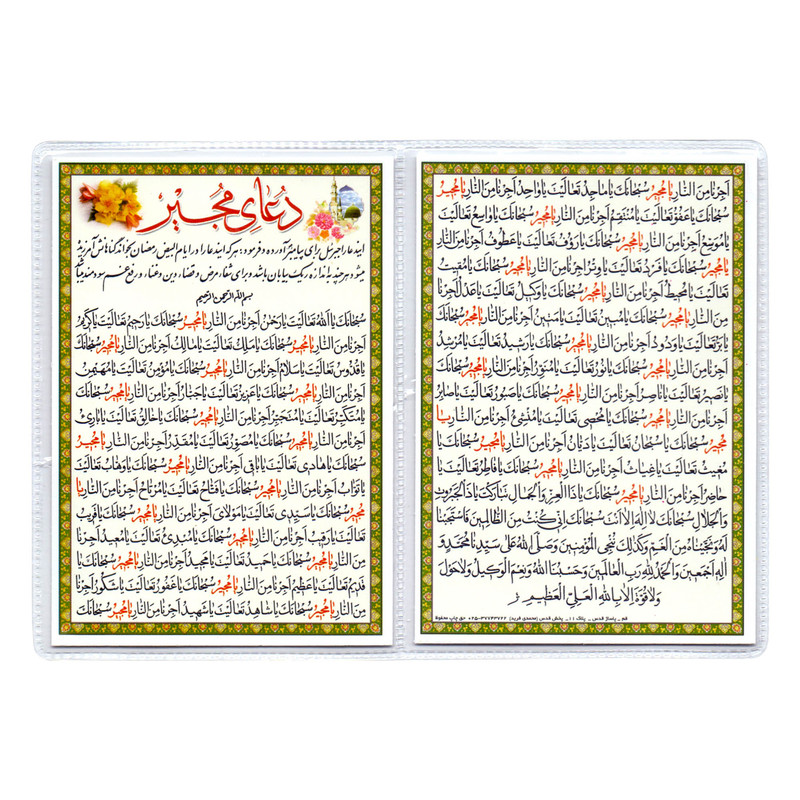 دعای مجیر
این دعا را جبرئیل برای پیامبر آورده و فرمود: هر که این دعا را در ایام البیض رمضان بخواند گناهانش آمرزیده
شود هر چند به اندازه ریگ بیابان باشد و برای شفاء مرض و قضاء دین و غناء و رفع غم سودمند
بسم الله الرحمن الرحیم
سُبْحانَكَ يا اَللهُ تَعالَيْتَ يا رَحْمنُ اَجِرْنا مِنَ النّارِ يا مُجيرُ سُبْحانَكَ يا رَحيمُ تَعالَيْتَ يا كَريمُ
اَجِرْنا مِنَ النّارِ يا مُجيرُ سُبْحانَكَ يا مَلِكُ تَعالَيْتَ يا مالِكُ اَجِرْنا مِنَ النّارِ يا مُجيرُ سُبْحانَكَ
يا قُدُّوسُ تَعالَيْتَ يا سَلامُ اَجِرْنا مِنَ النّارِ يا مُجيرُ سُبْحانَكَ يا مُؤْمِنُ تَعالَيْتَ يا مُهَيْمِنُ
اَجِرْنا مِنَ النّارِ يا مُجيرُ سُبْحانَكَ يا عَزيزُ تَعالَيْتَ يا جَبّارُ اَجِرْنا مِنَ النّارِ يا مُجيرُ سُبْحانَكَ
يا مُتَكَبِّرُ تَعالَيْتَ يا مُتَجَبِّرُ اَجِرْنا مِنَ النّارِ يا مُجيرُ سُبْحانَكَ يا خالِقُ تَعالَيْتَ يا بارِئُ
اَجِرْنا مِنَ النّارِ يا مُجيرُ سُبْحانَكَ يا مُصَوِّرُ تَعالَيْتَ يا مُقَدِّرُ اَجِرْنا مِنَ النّارِ يا مُجيرُ
سُبْحانَكَ يا هادي تَعالَيْتَ يا باقي اَجِرْنا مِنَ النّارِ يا مُجيرُ سُبْحانَكَ يا وَهّابُ تَعالَيْتَ
يا تَوّابُ اَجِرْنا مِنَ النّارِ يا مُجيرُ سُبْحانَكَ يا فَتّاحُ تَعالَيْتَ يا مُرْتاحُ اَجِرْنا مِنَ النّارِ يا
مُجيرُ سُبْحانَكَ يا سَيِّدي تَعالَيْتَ يا مَوْلايَ اَجِرْنا مِنَ النّارِ يا مُجيرُ سُبْحانَكَ يا قَريبُ
تَعالَيْتَ يا رَقيبُ اَجِرْنا مِنَ النّارِ يا مُجيرُ سُبْحانَكَ يا مُبْدِئُ تَعالَيْتَ يا مُعيدُ اَجِرْنا
مِنَ النّارِ يا مُجيرُ سُبْحانَكَ يا حَميدُ تَعالَيْتَ يا مَجيدُ اَجِرْنا مِنَ النّارِ يا مُجيرُ سُبْحانَكَ يا
قَديمُ تَعالَيْتَ يا عَظيمُ اَجِرْنا مِنَ النّارِ يا مُجيرُ سُبْحانَكَ يا غَفُورُ تَعالَيْتَ يا شَكُورُ اَجِرْنا
مِنَ النّارِ يا مُجيرُ سُبْحانَكَ يا شاهِدُ تَعالَيْتَ يا شَهيدُ اَجِرْنا مِنَ النّارِ يا مُجيرُ سُبْحانَكَ
اَجِرْنا مِنَ النّارِ يا مُجيرُ سُبْحانَكَ يا ماجِدُ تَعالَيْتَ يا واحِدُ اَجِرْنا مِنَ النّارِ يا مُجيرُ
سُبْحانَكَ يا عَفُوُّ تَعالَيْتَ يا مُنْتَقِمُ اَجِرْنا مِنَ النّارِ يا مُجيرُ سُبْحانَكَ يا واسِعُ تَعالَيْتَ
يا مُوَسِّعُ اَجِرْنا مِنَ النّارِ يا مُجيرُ سُبْحانَكَ يا رَؤُفُ تَعالَيْتَ يا عَطُوفُ اَجِرْنا مِنَ النّارِ
يا مُجيرُ سُبْحانَكَ يا فَرْدُ تَعالَيْتَ يا وِتْرُ اَجِرْنا مِنَ النّارِ يا مُجيرُ سُبْحانَكَ يا مُقيتُ
تَعالَيْتَ يا مُحيطُ اَجِرْنا مِنَ النّارِ يا مُجيرُ سُبْحانَكَ يا وَكيلُ تَعالَيْتَ يا عَدْلُ اَجِرْنا
مِنَ النّارِ يا مُجيرُ سُبْحانَكَ يا مُبينُ تَعالَيْتَ يا مَتينُ اَجِرْنا مِنَ النّارِ يا مُجيرُ سُبْحانَكَ
يا بَرُّ تَعالَيْتَ يا وَدُودُ اَجِرْنا مِنَ النّارِ يا مُجيرُ سُبْحانَكَ يا رَشيدُ تَعالَيْتَ يا مُرْشِدُ
اَجِرْنا مِنَ النّارِ يا مُجيرُ سُبْحانَكَ يا نُورُ تَعالَيْتَ يا مُنَوِّرُ اَجِرْنا مِنَ النّارِ يا مُجيرُ سُبْحانَكَ
يا نَصيرُ تَعالَيْتَ يا ناصِرُ اَجِرْنا مِنَ النّارِ يا مُجيرُ سُبْحانَكَ يا صَبُورُ تَعالَيْتَ يا صابِرُ
اَجِرْنا مِنَ النّارِ يا مُجيرُ سُبْحانَكَ يا مُحْصي تَعالَيْتَ يا مُنْشِئُ اَجِرْنا مِنَ النّارِ يا
مُجيرُ سُبْحانَكَ يا سُبْحانُ تَعالَيْتَ يا دَيّانُ اَجِرْنا مِنَ النّارِ يا مُجيرُ سُبْحانَكَ يا
مُغيثُ تَعالَيْتَ يا غِياثُ اَجِرْنا مِنَ النّارِ يا مُجيرُ سُبْحانَكَ يا فاطِرُ تَعالَيْتَ يا
حاضِرُ اَجِرْنا مِنَ النّارِ يا مُجيرُ سُبْحانَكَ يا ذَا الْعِزِّ وَالْجَمالِ تَبارَكْتَ يا ذَا الْجَبَرُوتِ
وَالْجَلالِ سُبْحانَكَ لا اِلهَ اِلاّ اَنْتَ سُبْحانَكَ اِنّي كُنْتُ مِنَ الظّالِمينَ فَاسْتَجَبْنا
لَهُ وَنَجَّيْناهُ مِنَ الْغَمِّ وَكَذلِكَ نُنْجِي الْمُؤْمِنينَ وَصَلَّى اللهُ عَلى سَيِّدِنا مُحَمَّدٍ وَ
آلِهِ اَجْمَعينَ وَالْحَمْدُ للهِِ رَبِّ الْعالَمينَ وَحَسْبُنَا اللهُ وَنِعْمَ الْوَكيلُ وَلا حَوْلَ
وَلا قُوَّةَ اِلاّ بِاللهِ الْعَلِيِّ الْعَظيمِ
قم _ پاساژ قدس _ پلاک ۱۱ _ پخش قدس (محمدی فرید) ۳۷۷۴۳۷۲۲-۰۲۵ حق چاپ محفوظ